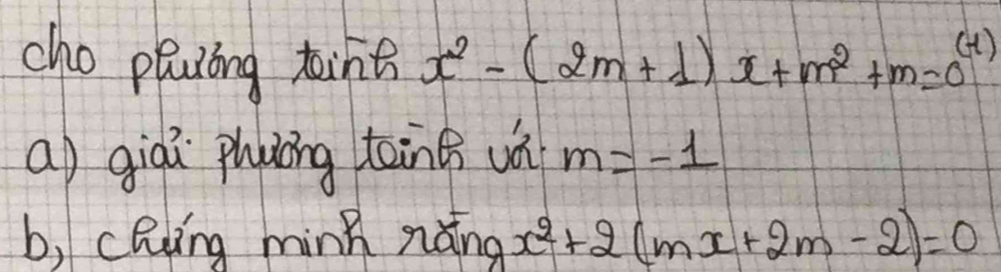 cho phương trình x² - (2m + 1) x + m² + m = 0 (1)
a) giải phương trình với m = -1
b, chứng minh rằng x² + 2 (mx + 2m - 2) = 0